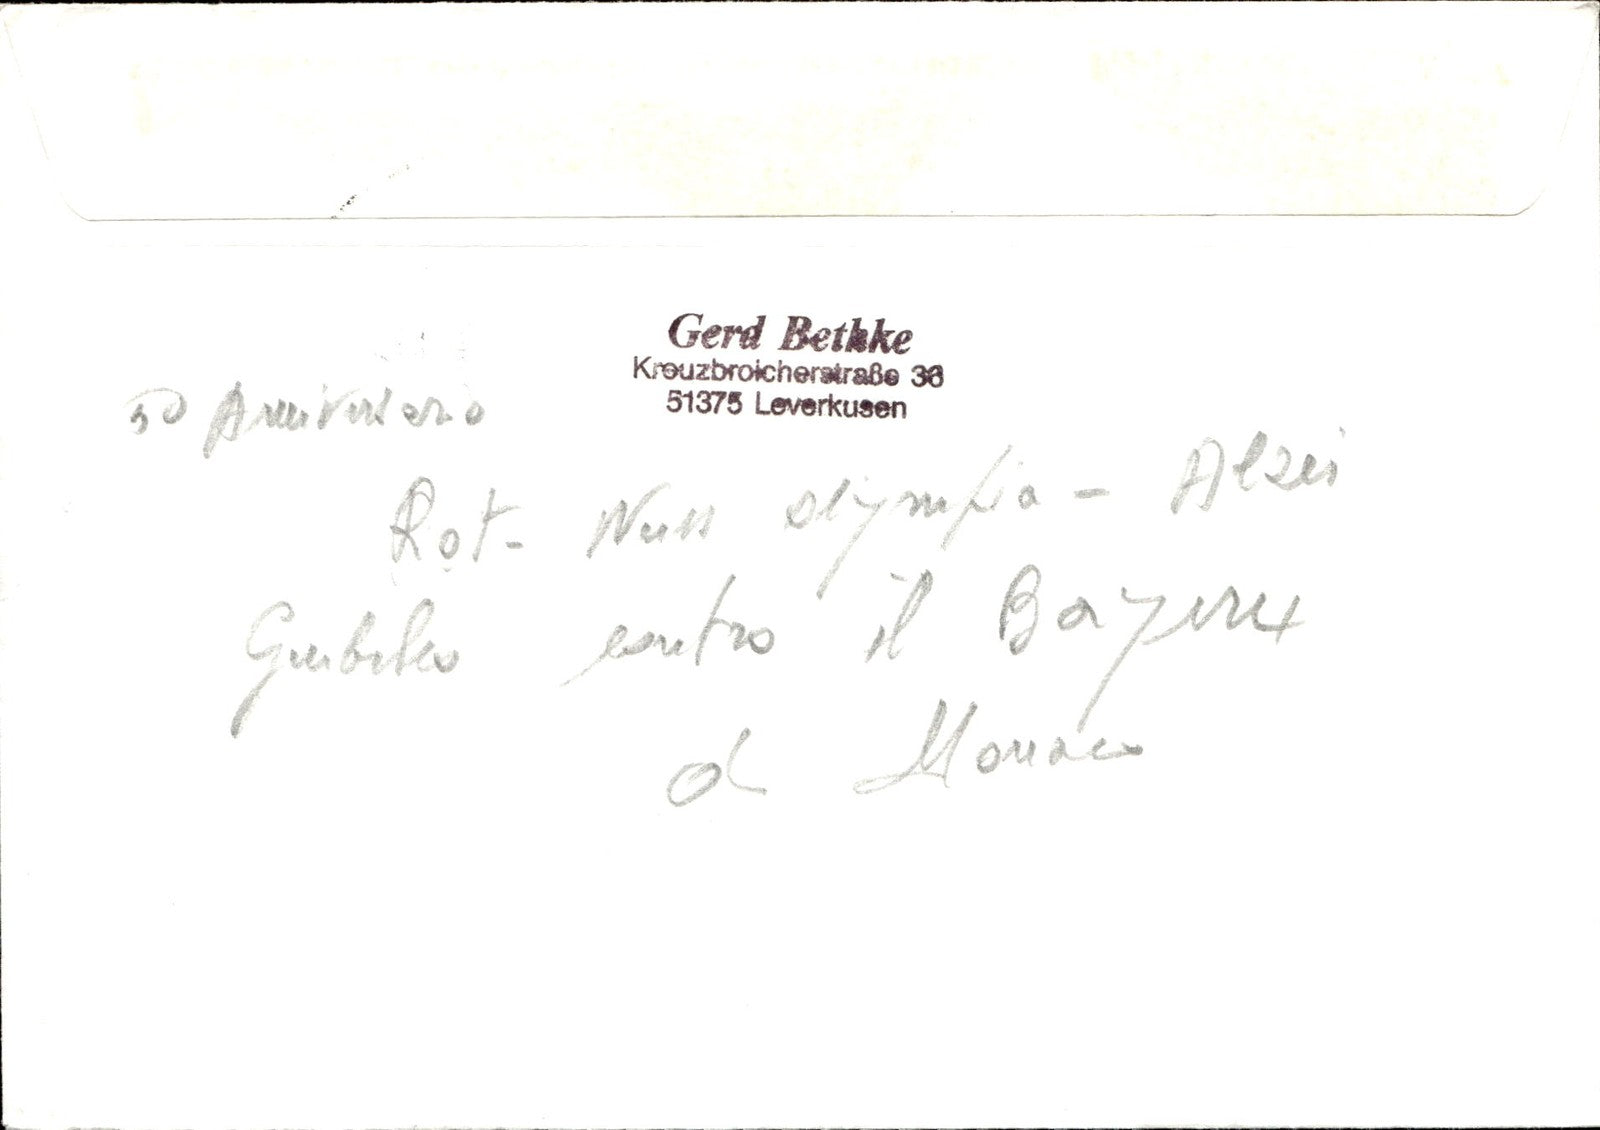 Gerd Bethke
Kreuzbroicherstraße 36
51375 Leverkusen
50 Anniversario
Rot- Olympia - Alzei
contro il Bayern
di Monaco